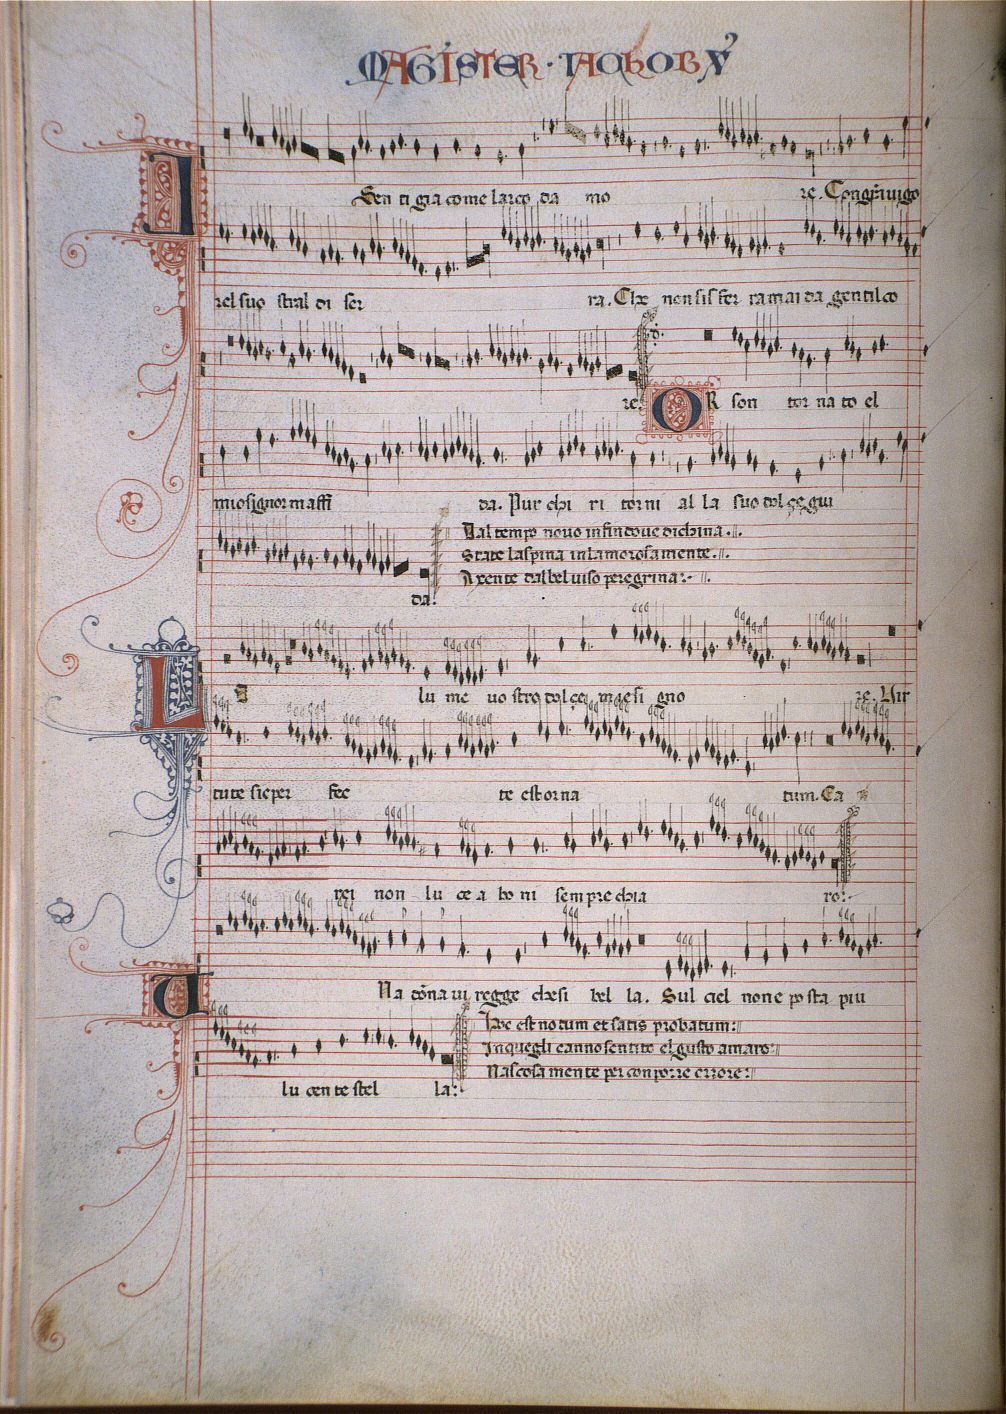 MAGISTER · IACHOB9
I Senti gia come larco da mo re. Con gra uigo
rel suo stral di fer ra. Che non sis fer ra mai da gentilco
re. OR son tor na to el
mio signor maffi da. Pur chi ri torni al la suo dolce gui
Dal tempo nouo infindoue dichina.
State laspina inlamorosamente.
Axente dalbel uiso peregrina:
da.
L lu me uostro dolce mae si gno re. Uir
tute sieper fec te estorna tum. Ea
rei non lu ce a bo ni sempre chia ro:
U Na cōna ui regge chesi bel la. Sul ciel non e posta piu
Hoc est notum et satis probatum:
In quegli canno sentito el gusto amaro:
Nascosa mente per conporre errore:
lu cen te stel la: